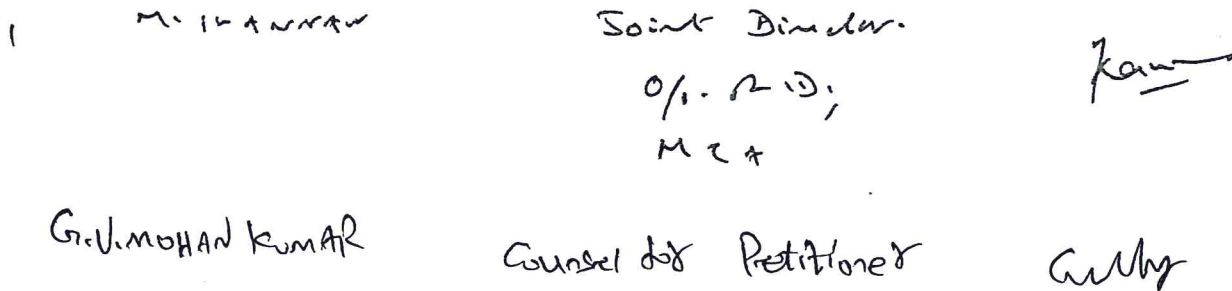 1 M. KANNAN Joint Director.
O/o. RD,
MCA
G.V.MOHAN KUMAR Counsel for Petitioner